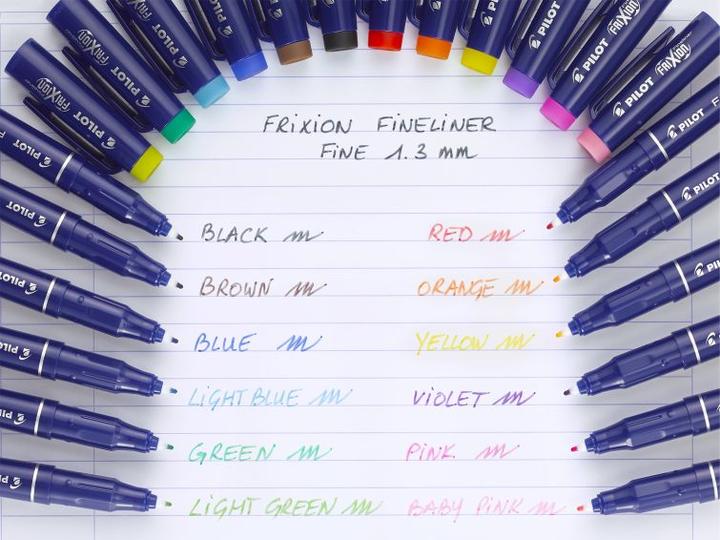 FRiXiON FiNELiNER
FiNE 1.3 mm
BLACK
BROWN
BLUE
LiGHT BLUE
GREEN
LiGHT GREEN
RED
ORANGE
YELLOW
ViOLET
PiNK
BABY PiNK
PILOT FRIXION
PILOT FRIXION
PILOT
PILOT
PILOT
PILOT
PILOT
PILOT
PILOT FRIXION
PILOT FRIXION
PILOT
PILOT
PILOT
PILOT
PILOT
PILOT
PILOT
PILOT
PILOT